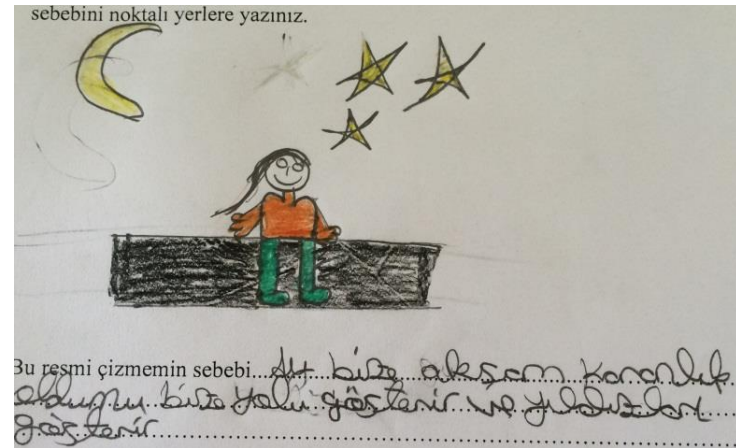 sebebini noktalı yerlere yazınız.
Bu resmi çizmemin sebebi... Ay bize akşam karanlık
oldunu bize yolu gösterir ve yıldızları
gösterir